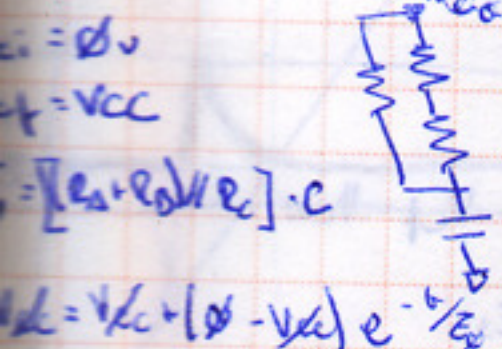 ci = Ø v
cf = VCC
= [(RA + RB) // RC] · C
= Vcc + (Ø - Vcc) e^-t/